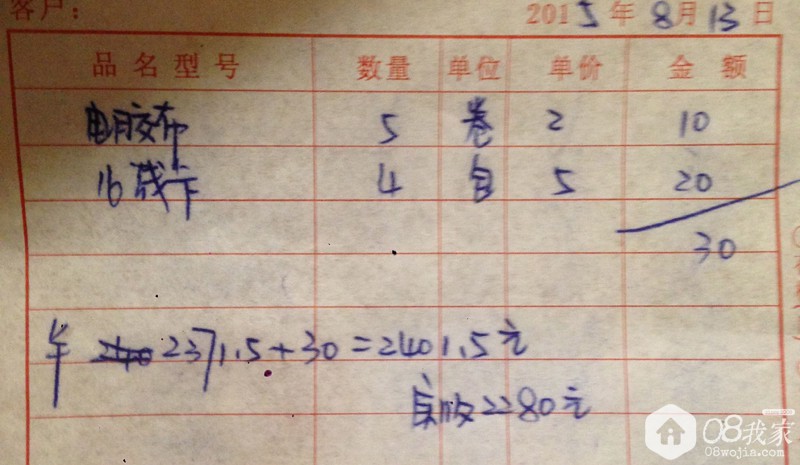 客户：
2015年8月13日
品名型号 数量 单位 单价 金额
电胶布 5 卷 2 10
16 线卡 4 包 5 20
30
2371.5+30=2401.5元
实收2280元
08我家
08wojia.com